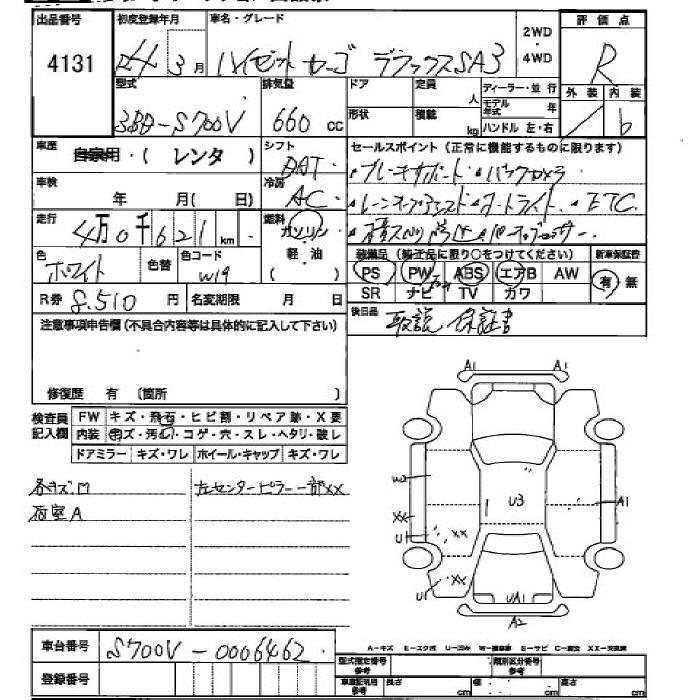 出品番号 初度登録年月 車名・グレード 2WD 4WD 評価点
4131 R4年 3月 ハイゼットカーゴ デラックスSA3 R
型式 排気量 ドア 定員 人 ディーラー・並行 外装 内装
3BD-S700V 660 cc 形状 積載 kg モデル年式 年 ハンドル 左・右 b
車歴 自家用・( レンタ ) シフト DAT セールスポイント (正常に機能するものに限ります)
・ブレーキサポート ・バックカメラ
車検 年 月( 日) 冷房 AC ・オートライト ・ETC
走行 4万0千621km 燃料 ガソリン 軽・油
色 ホワイト 色替 色コード W19
装備品 (純正品に限り○をつけてください) 新車保証書
PS PW ABS エアB AW 有・無
SR ナビ TV カワ
R券 8,510円 名変期限 月 日 後日品 取説 保証書
注意事項申告欄(不具合内容等は具体的に記入して下さい)
修復歴 有 (箇所 )
検査員記入欄 FW キズ・飛石・ヒビ割・リペア跡・X要
内装 キズ・汚れ・コゲ・穴・スレ・ヘタリ・破レ
ドアミラー キズ・ワレ ホイール・キャップ キズ・ワレ
各キズM 左センターピラー一部XX
荷室A
A1 A1
W2 U3 A1
XX XX
U1
XX
U1 UA1
A2
A-キズ E-エクボ U-凹み W-補修跡 S-サビ C-腐食 XX-交換済
車台番号 S700V-0006462
登録番号
型式指定番号 参考 類別区分番号 参考
車庫証明用 参考 長さ cm 幅 cm 高さ cm